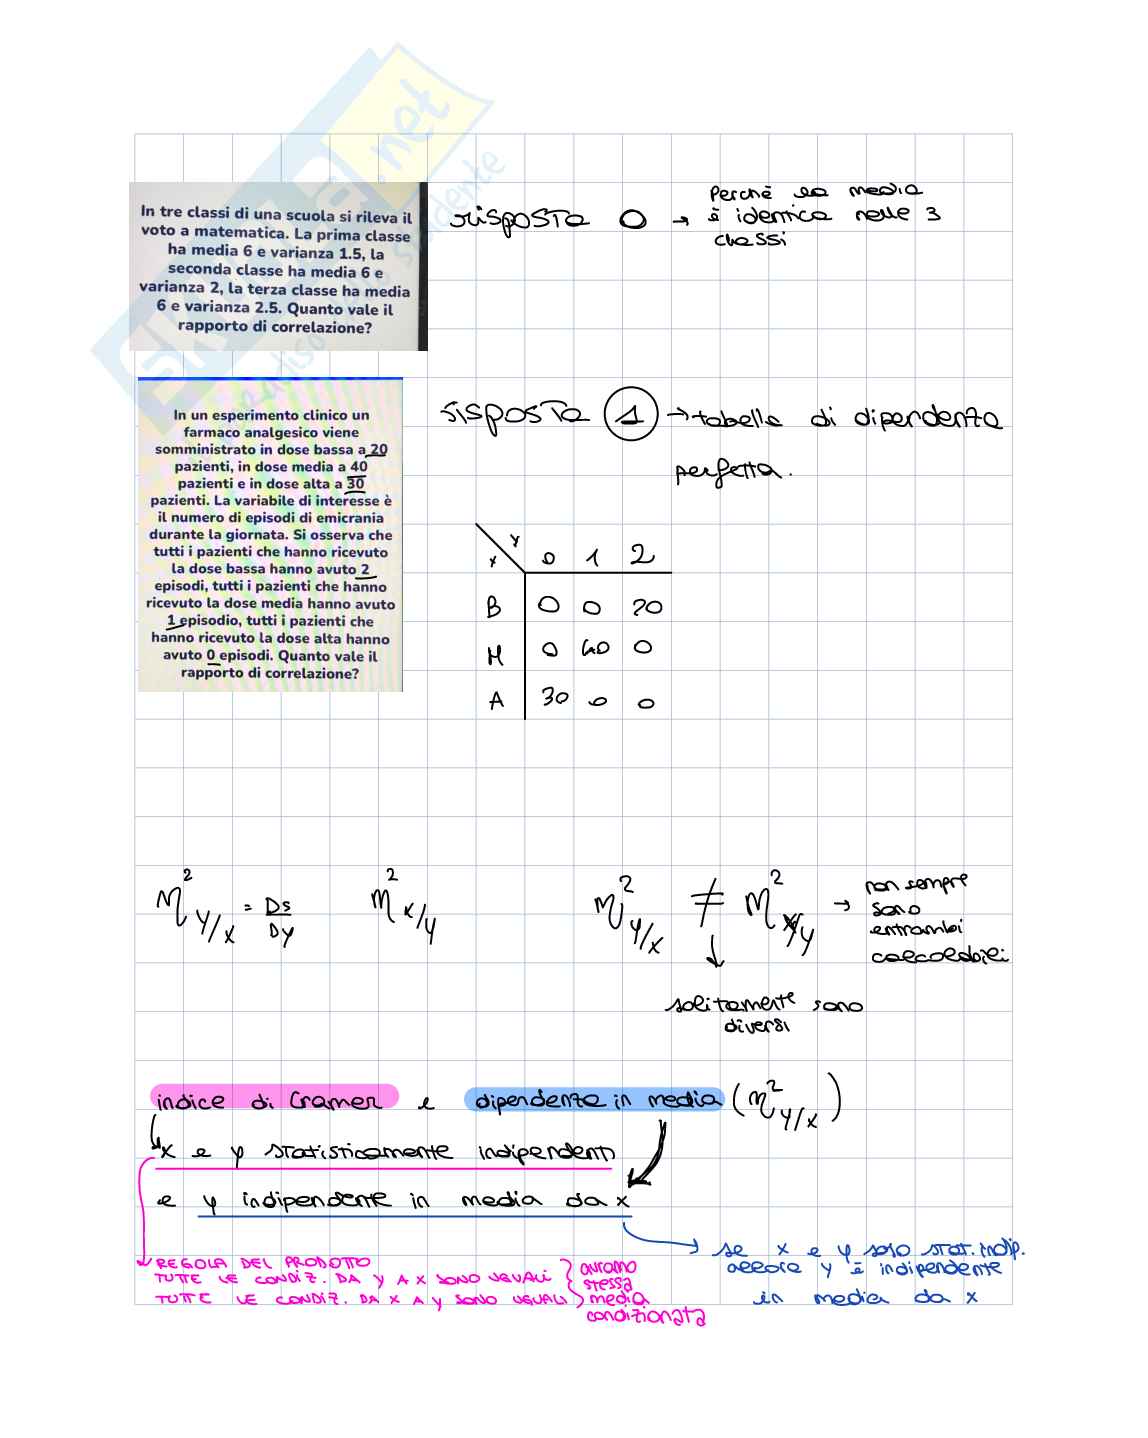 In tre classi di una scuola si rileva il
voto a matematica. La prima classe
ha media 6 e varianza 1.5, la
seconda classe ha media 6 e
varianza 2, la terza classe ha media
6 e varianza 2.5. Quanto vale il
rapporto di correlazione?
risposta 0 → Perché la media
è identica nelle 3
classi
In un esperimento clinico un
farmaco analgesico viene
somministrato in dose bassa a 20
pazienti, in dose media a 40
pazienti e in dose alta a 30
pazienti. La variabile di interesse è
il numero di episodi di emicrania
durante la giornata. Si osserva che
tutti i pazienti che hanno ricevuto
la dose bassa hanno avuto 2
episodi, tutti i pazienti che hanno
ricevuto la dose media hanno avuto
1 episodio, tutti i pazienti che
hanno ricevuto la dose alta hanno
avuto 0 episodi. Quanto vale il
rapporto di correlazione?
risposta 1 → tabella di dipendenza
perfetta.
x y 0 1 2
B 0 0 20
M 0 40 0
A 30 0 0
η² Y/X = DS/DY
η² X/Y
η² Y/X ≠ η² X/Y → non sempre
sono
entrambi
calcolabili
↓
solitamente sono
diversi
indice di Cramer e dipendenza in media (η² Y/X)
x e y statisticamente indipendenti
e y indipendente in media da x
→ se x e y solo stat. indip.
allora y è indipendente
in media da x
REGOLA DEL PRODOTTO
TUTTE LE CONDIZ. DA Y A X SONO UGUALI
TUTTE LE CONDIZ. DA X A Y SONO UGUALI
avranno
stessa
media
condizionata